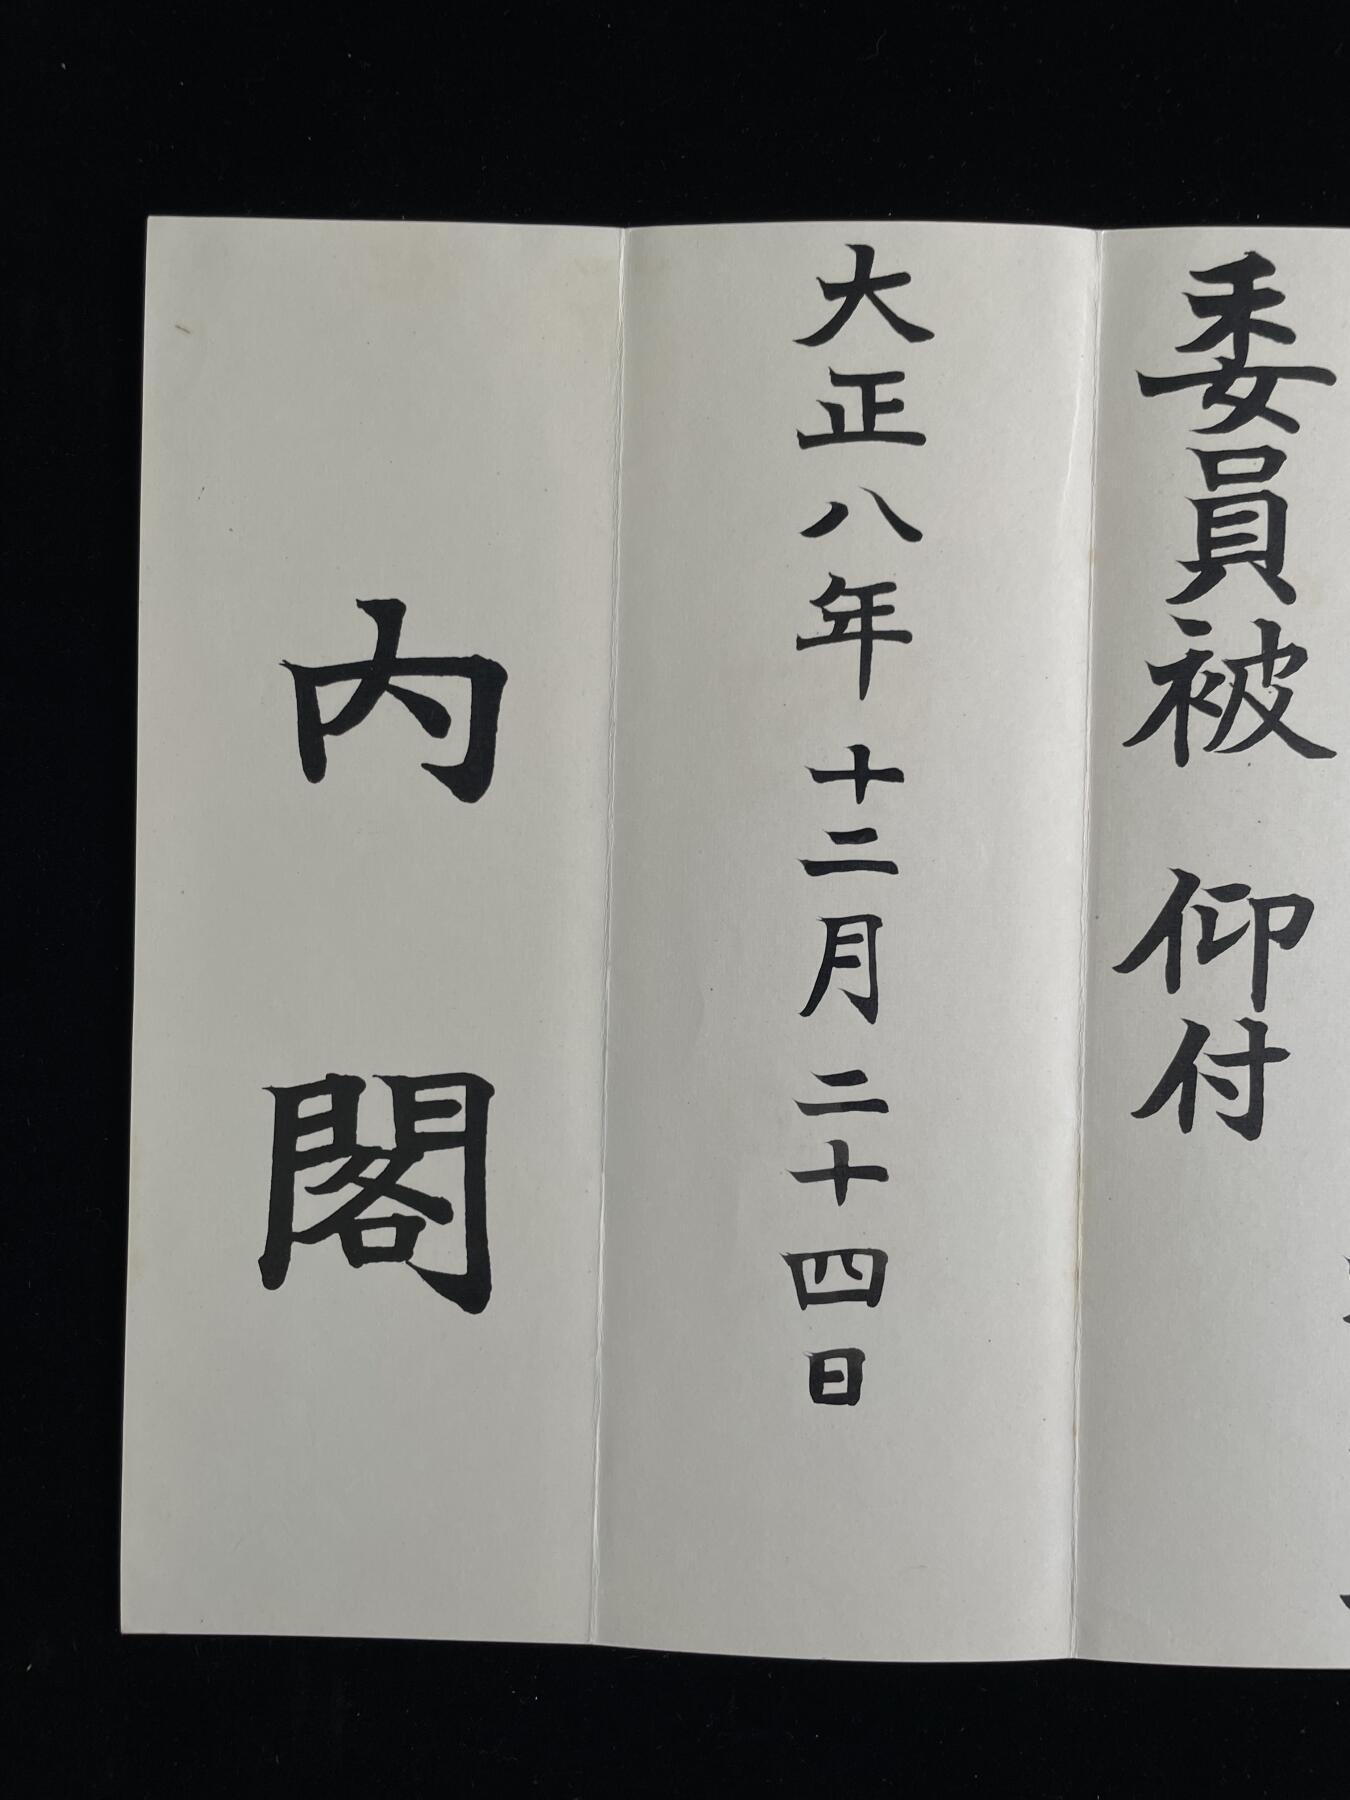 委員被 仰付
大正八年十二月二十四日
內閣